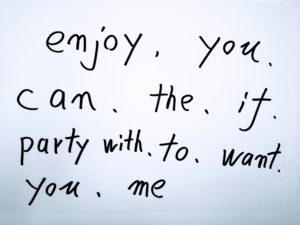 enjoy. you.
can. the. if.
party with. to. want.
you. me